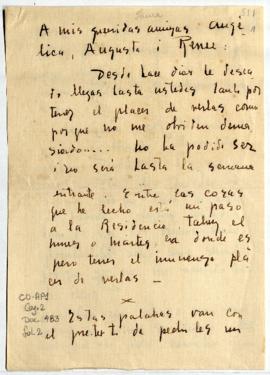 A mis queridas amigas Angé
lica, Augusta i Renee:
Desde hace dias he desea
do llegar hasta ustedes tanto por
tener el placer de verlas como
por que no me olviden dema
siado.... no ha podido ser
i no será hasta la semana
entrante. Entre las cosas
que he hecho está un paso
a la Residencia, talvez el
lunes o martes, en donde es
pero tener el inmenso pla
cer de verlas _
x
Estas palabras van con
el pretexto de pedirles un
CO-AP1
Caj. 2
Doc. 483
Fol. 2